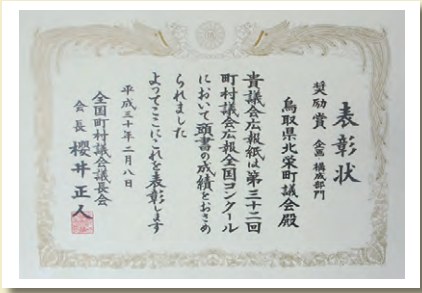 表彰状
奨励賞 企画・構成部門
鳥取県北栄町議会殿
貴議会広報紙は第三十二回
町村議会広報全国コンクール
において頭書の成績をおさめ
られました
よってここにこれを表彰します
平成三十年二月八日
全国町村議会議長会
会長 櫻井正人